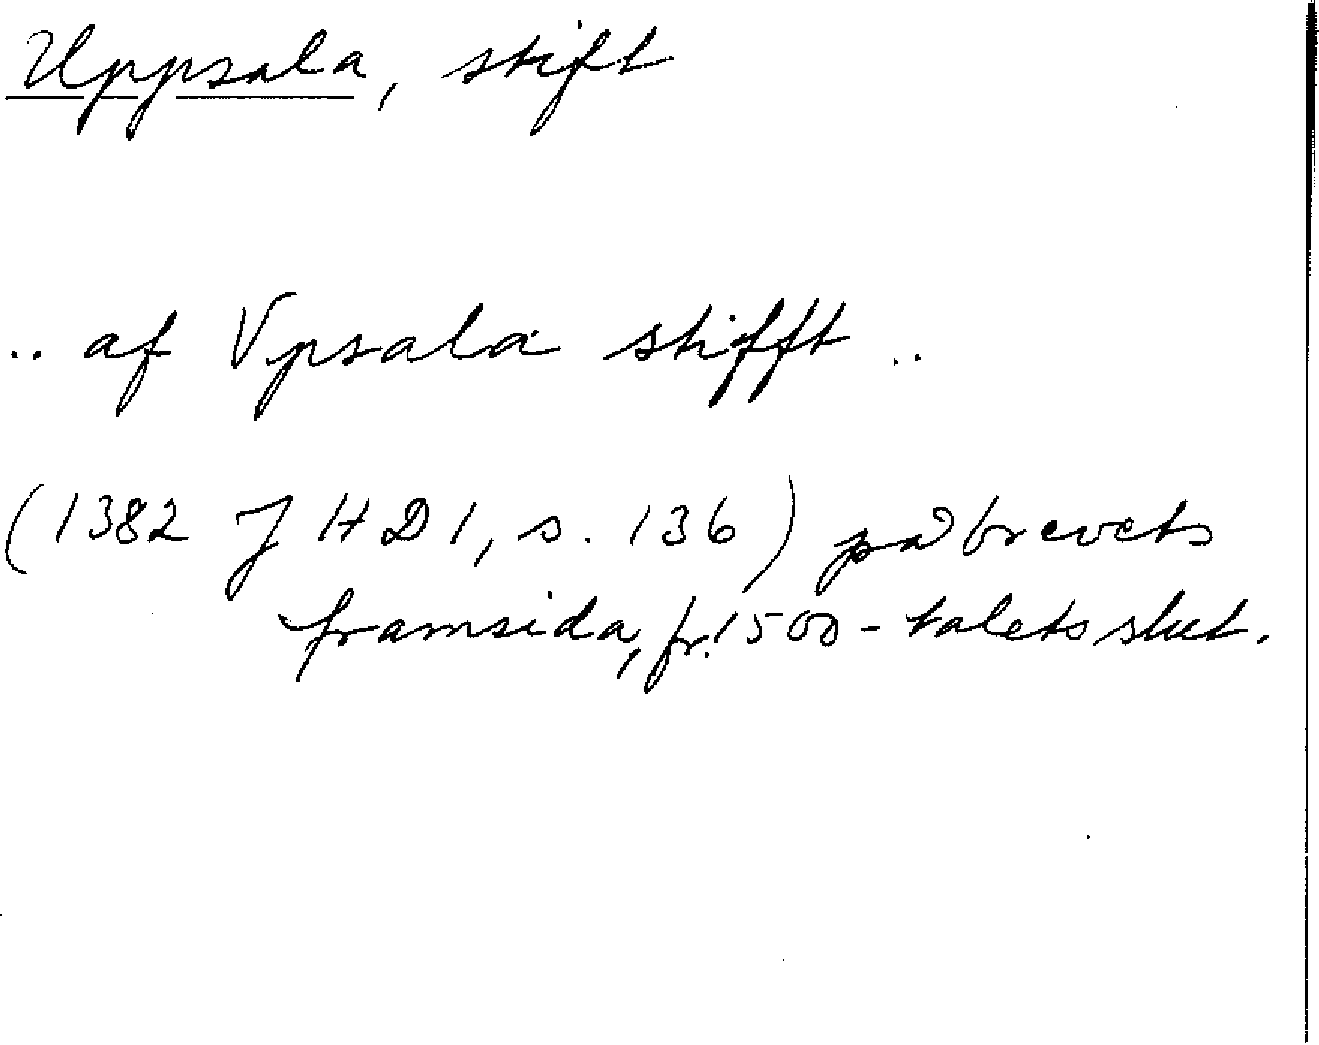 Uppsala, stift
.. af Vpsala stifft ..
(1382 JHD 1, s. 136) på brevets
framsida, fr. 1500-talets slut.